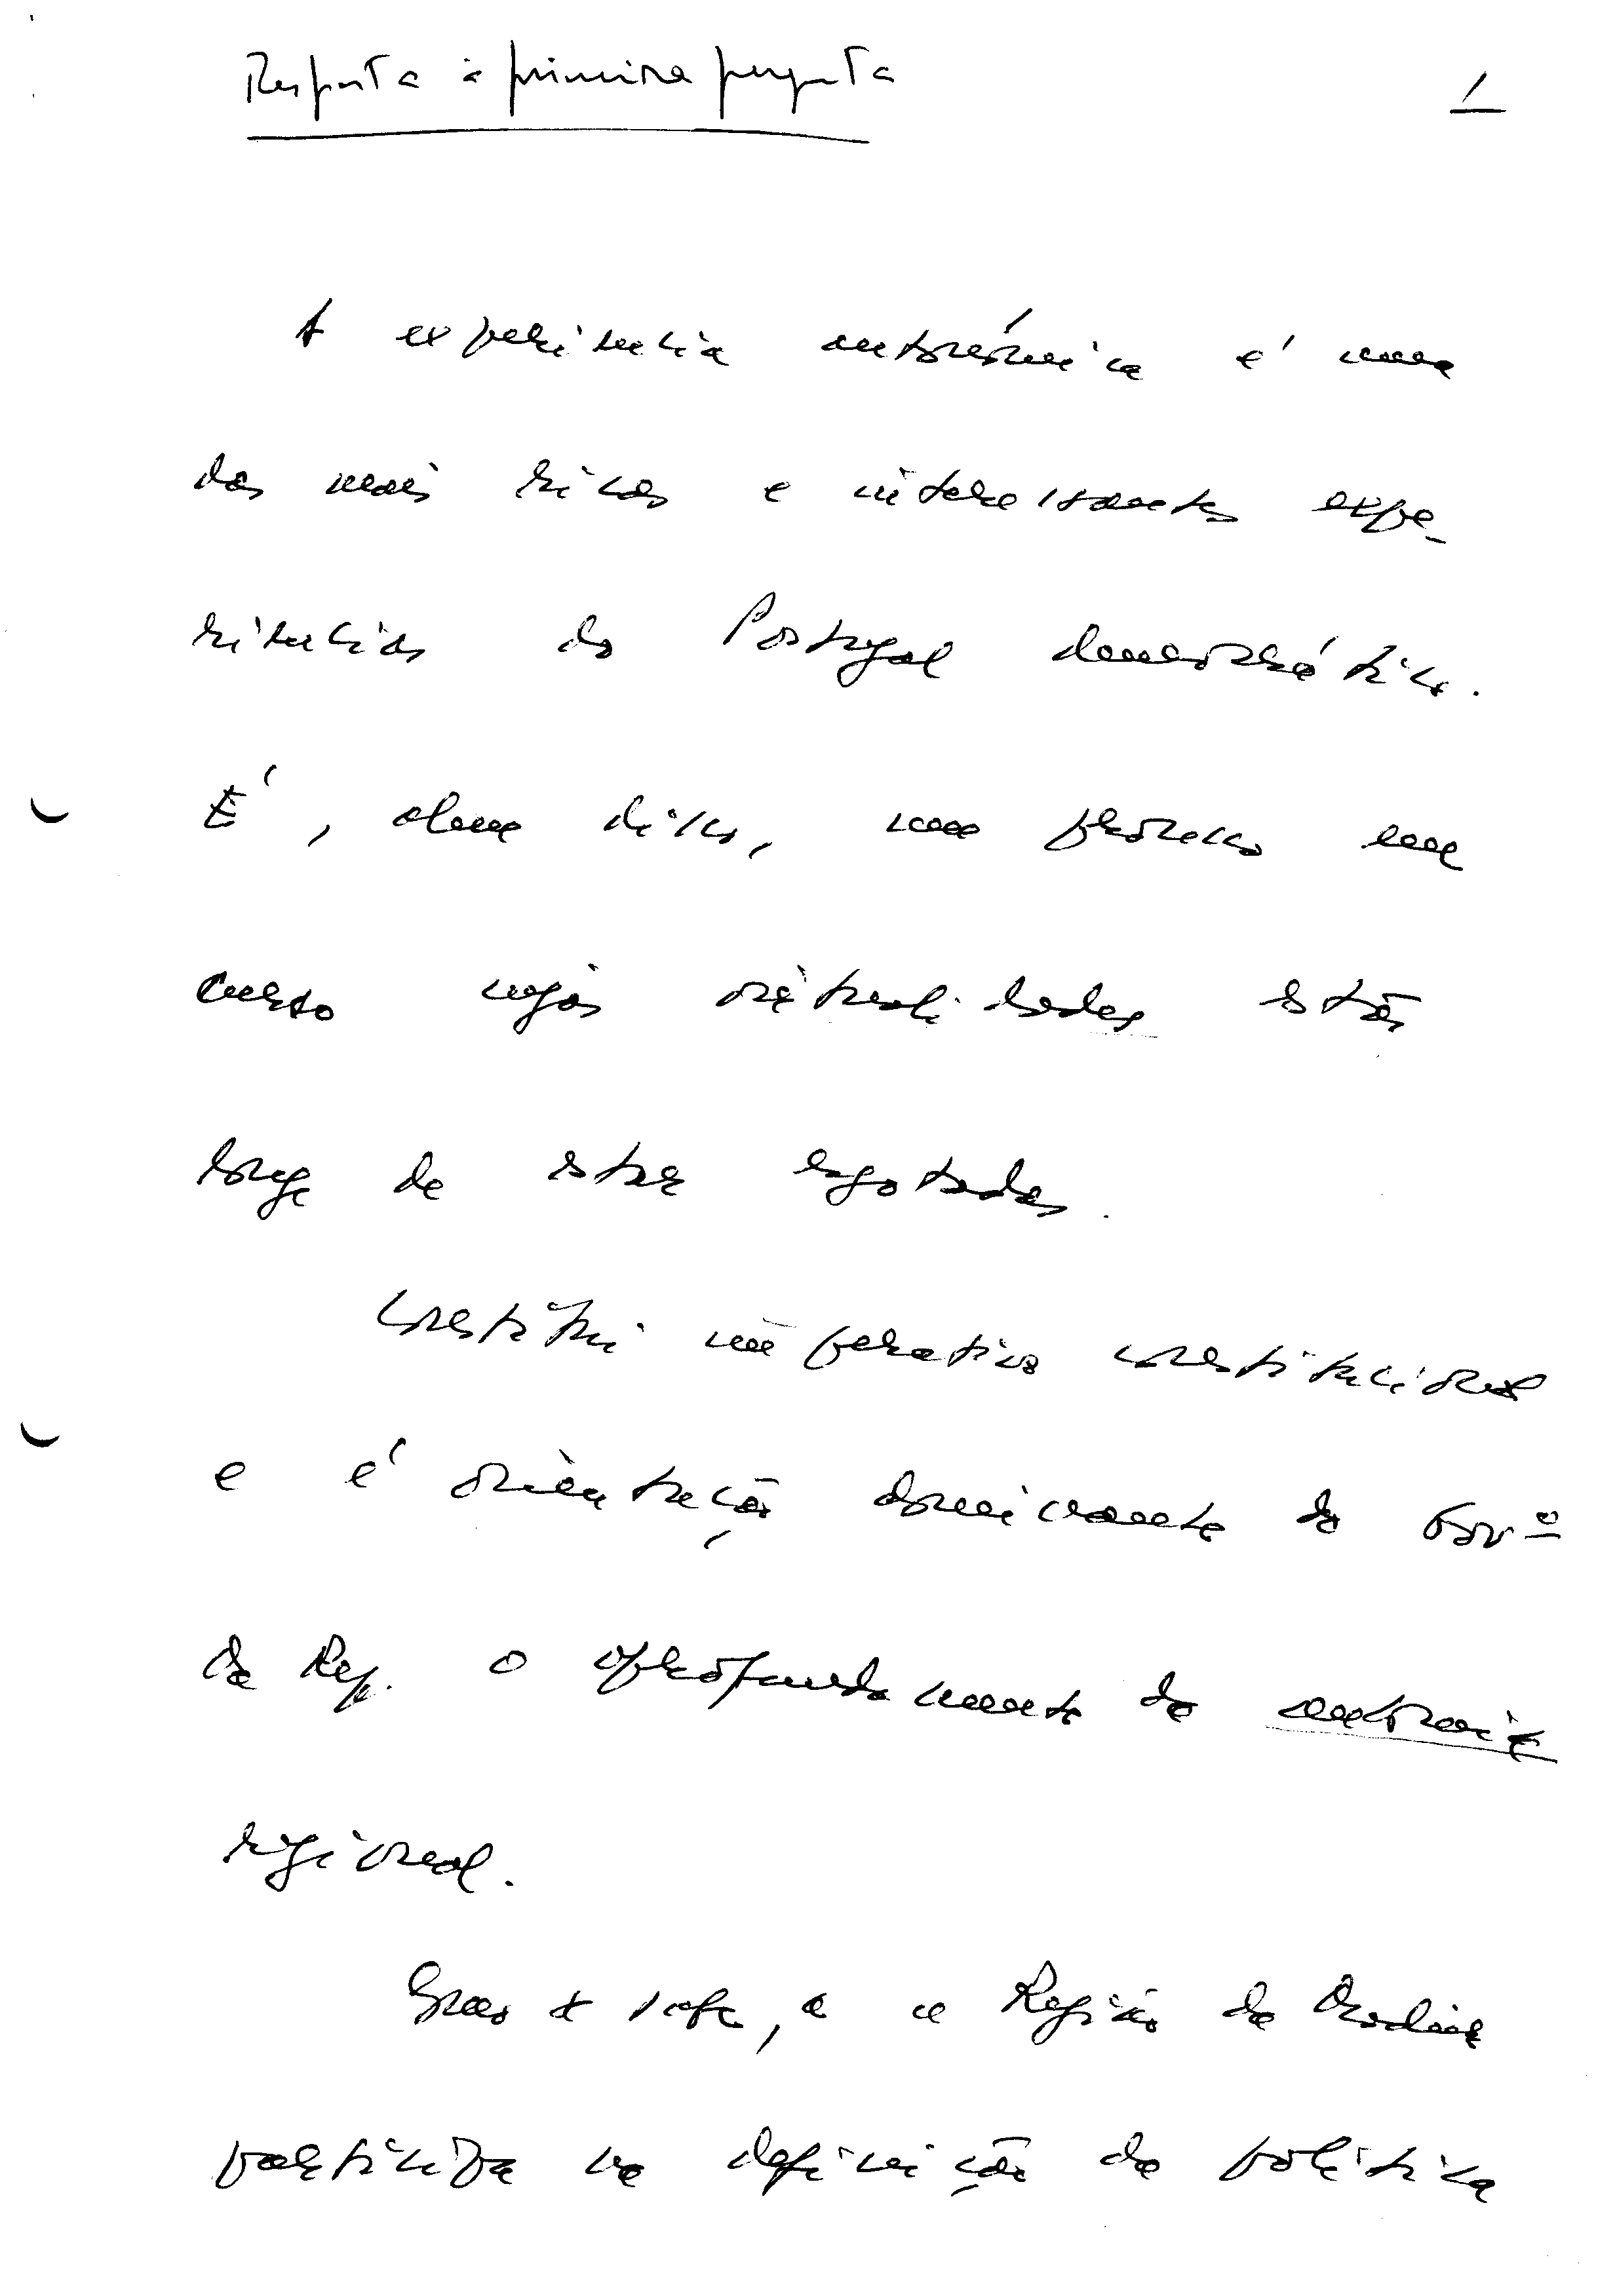 Resposta à primeira pergunta
1
A experiência autonómica é uma
das mais ricas e interessantes expe-
riências do Portugal democrático.
É, além disso, um processo em
curso cujas virtualidades estão
longe de estar esgotadas.
Constitui imperativo constitucional
e é orientação dominante do Govº
da Rep. o aprofundamento da autonomia
regional.
Como se sabe, a Região da Madeira
participa na definição da política